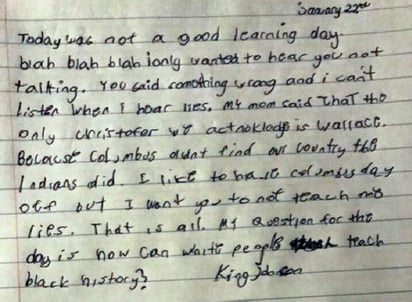 January 22nd
Today was not a good learning day.
blah blah blah ionly wanted to hear you not
talking. You said something wrong and i can't
listen when I hear lies. My mom said That the
only christofer we acknoklege is wallace.
Becacst Columbus didnt find our country the
Indians did. I like to have columbus day
off but I want you to not teach me
lies. That is all. My question for the
day is how can white people teach
black history?
King Johnson